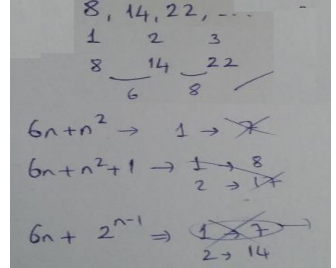 8, 14, 22, ....
1 2 3
8 14 22
6 8
6n+n² → 1 → 7
6n+n²+1 → 1 → 8
2 → 17
6n+ 2ⁿ⁻¹ ⇒ 1 → 7 →
2 → 14